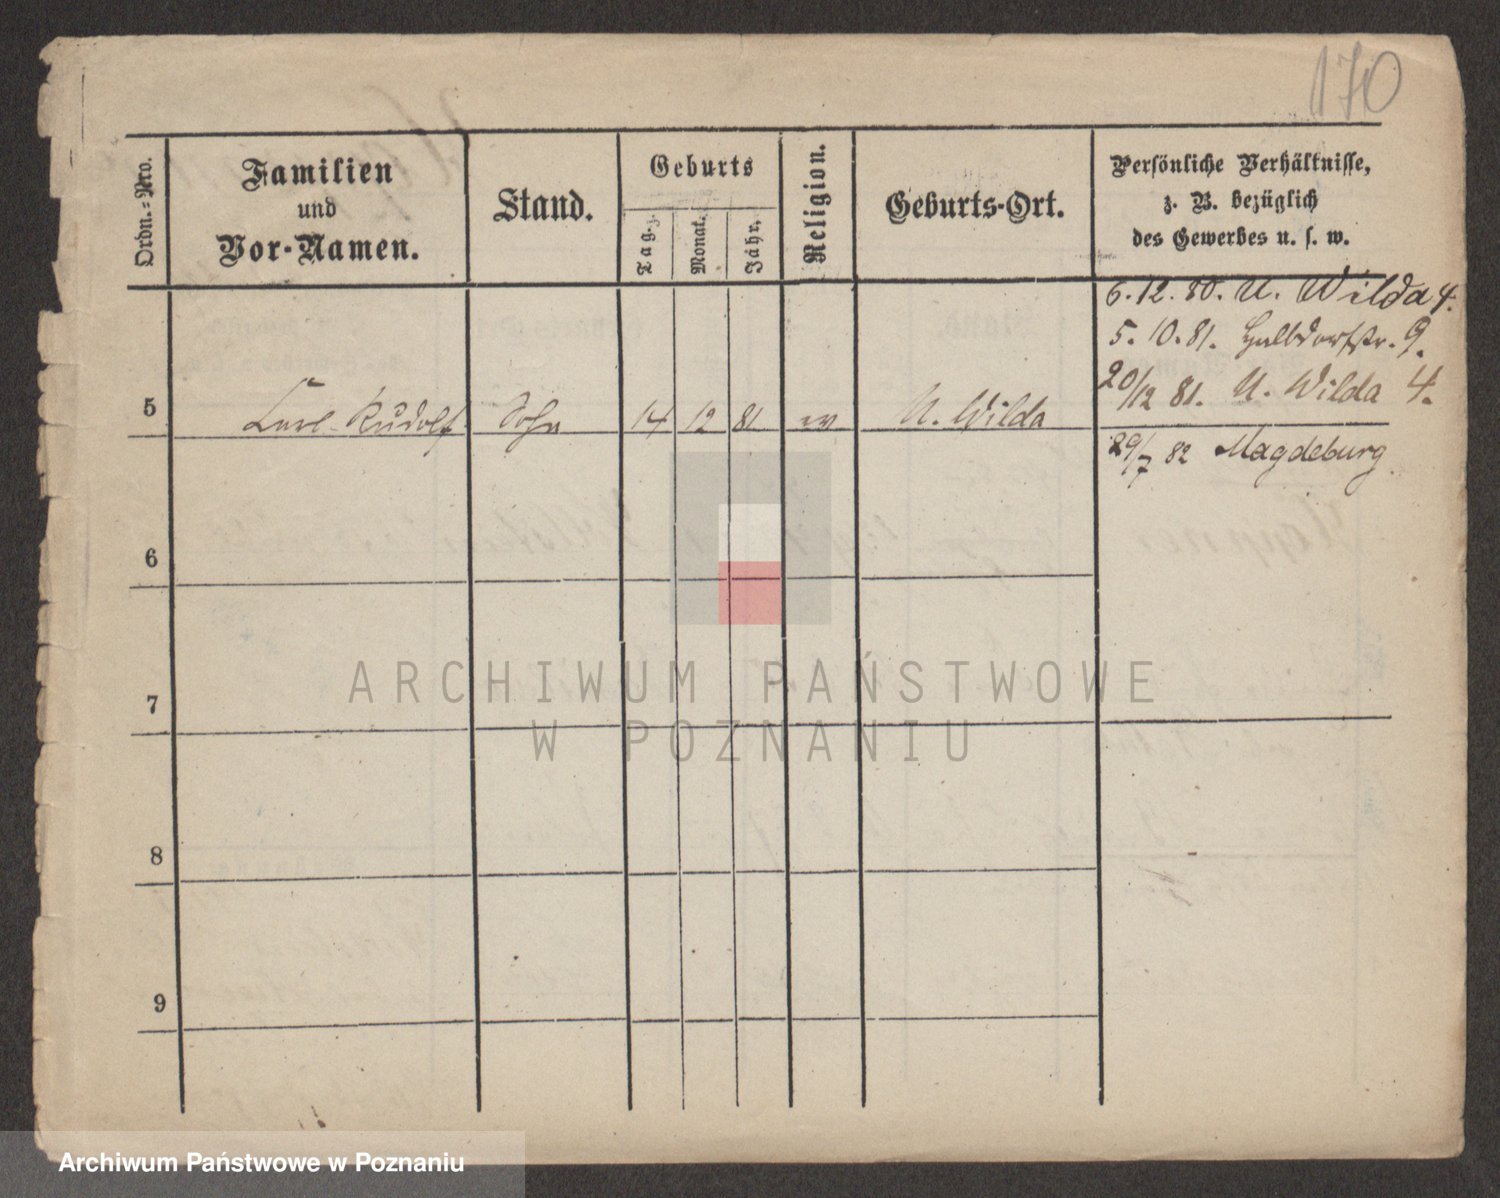 170
Ordn.-Nro.
Familien
und
Vor-Namen.
Stand.
Geburts
Tag.
Monat.
Jahr.
Religion.
Geburts-Ort.
Persönliche Verhältnisse,
z. B. bezüglich
des Gewerbes u. s. w.
6. 12. 80. U. Wilda 4.
5. 10. 81. Halbdorfstr. 9.
20/12 81. U. Wilda 4.
5 Carl Rudolf Sohn 14 12 81 ev U. Wilda
29/7 82 Magdeburg
6
7
8
9
ARCHIWUM PAŃSTWOWE
W POZNANIU
Archiwum Państwowe w Poznaniu